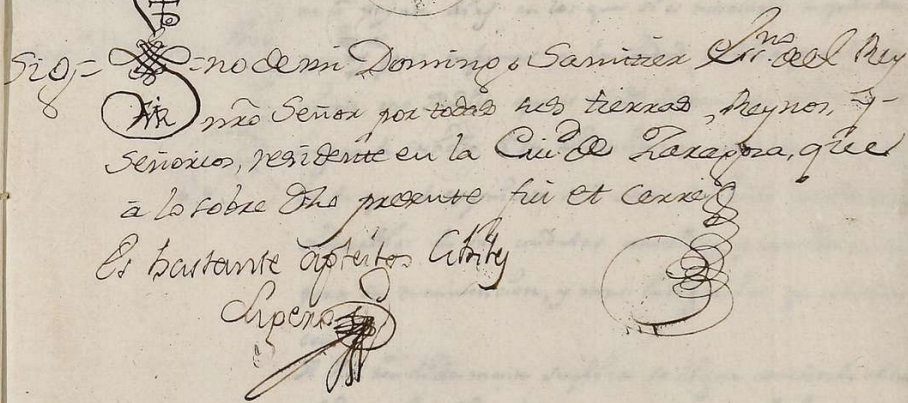 Sig= =no de mi Domingo Samitier Ssno. del Rey
nro Señor por todas sus tierras, Reynos, y
Señorios, residente en la Ciud. de Zaragoza, que
à lo sobre dho presente fui et cerre
Es bastante